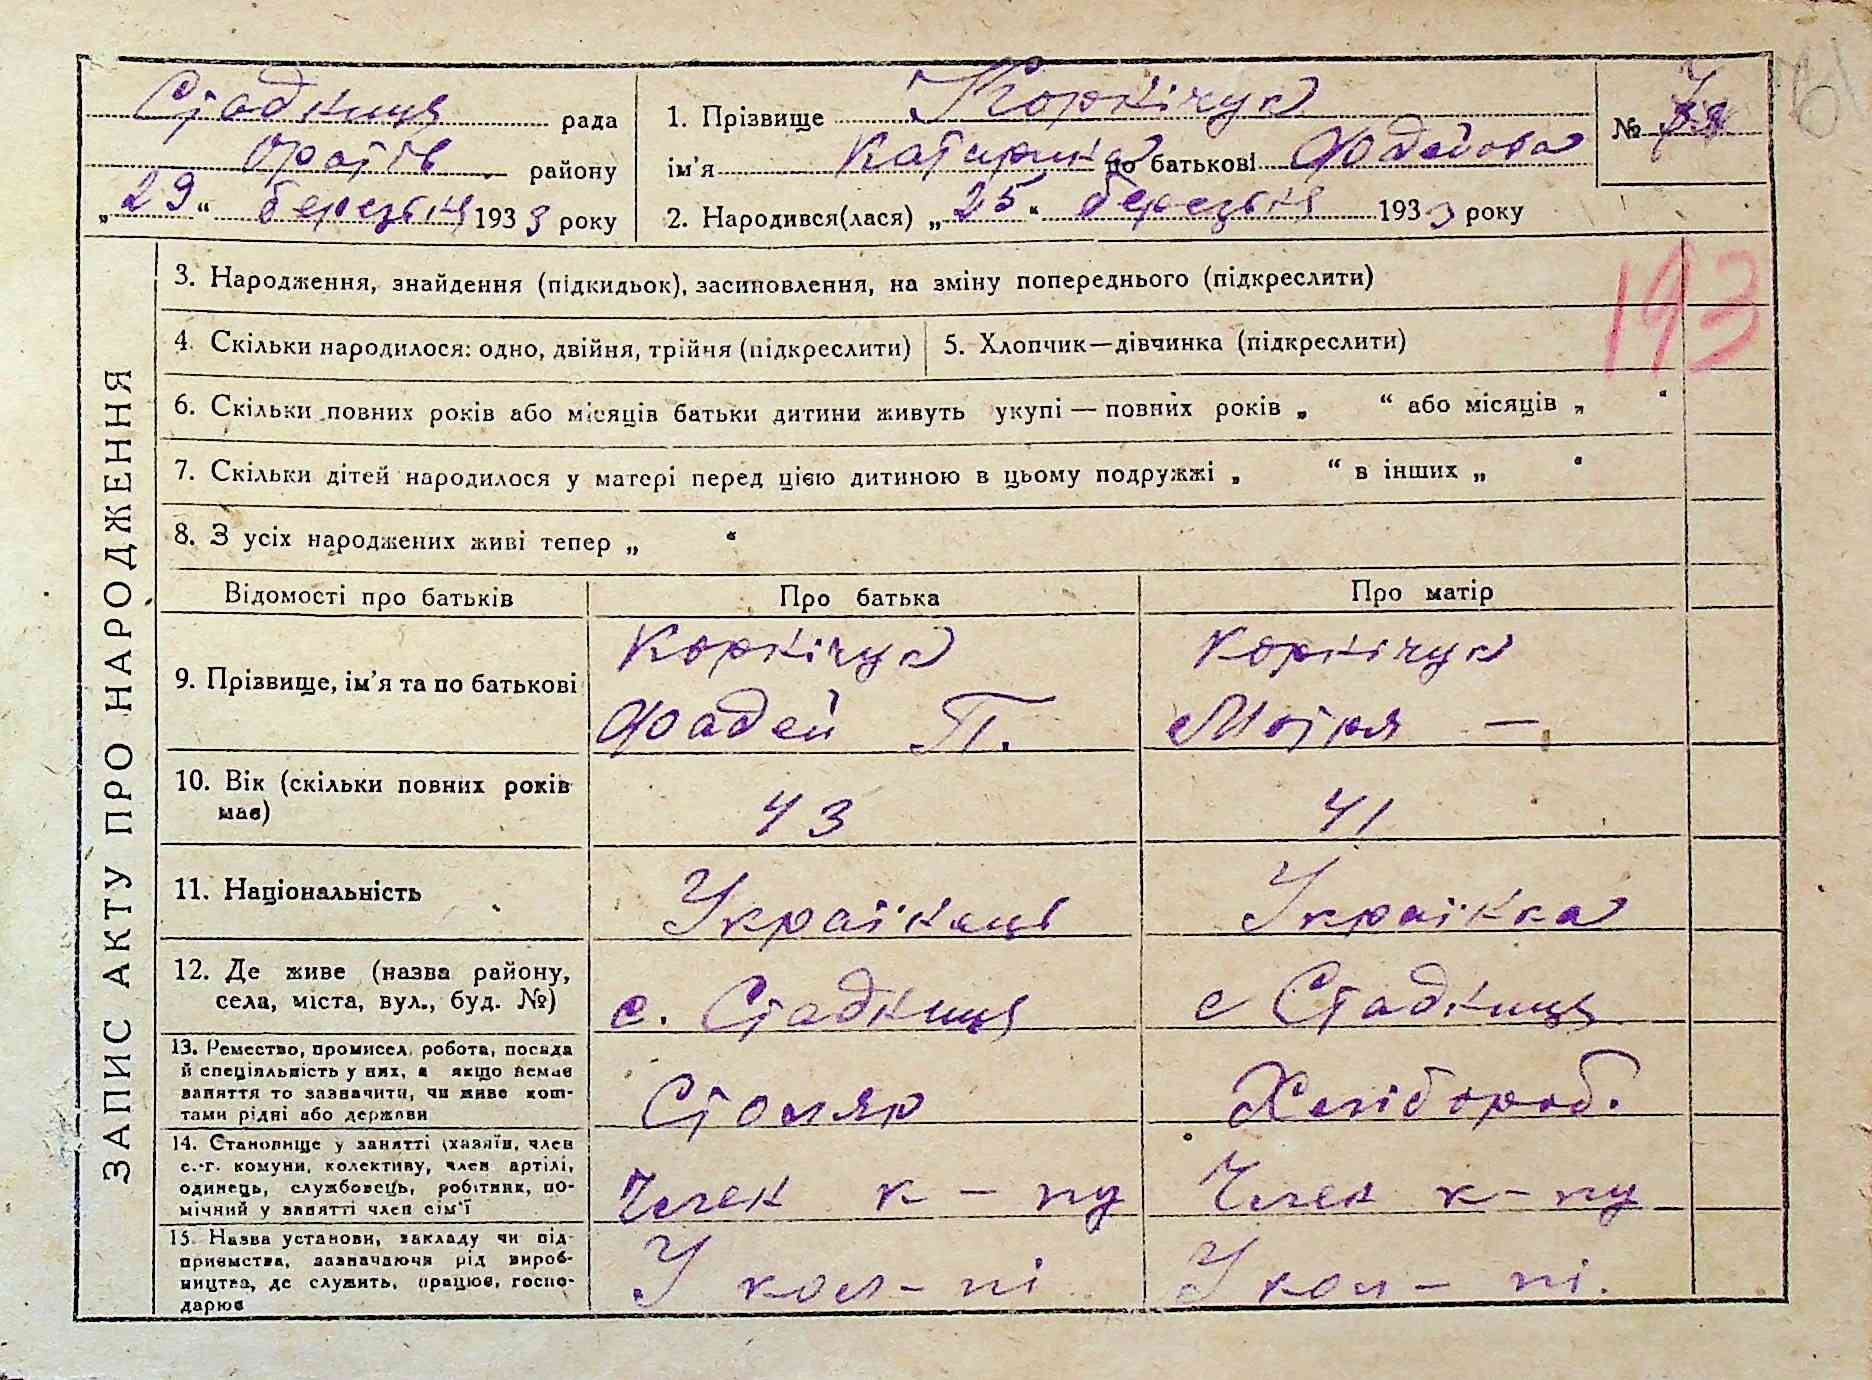 Стадниця рада
Оратів району
„29“ березня 1933 року
1. Прізвище Коркічук
ім'я Катерина по батькові Фадеєва
2. Народився(лася) „25“ березня 1933 року
№
193
ЗАПИС АКТУ ПРО НАРОДЖЕННЯ
3. Народження, знайдення (підкидьок), засиновлення, на зміну попереднього (підкреслити)
4. Скільки народилося: одно, двійня, трійня (підкреслити)
5. Хлопчик—дівчинка (підкреслити)
6. Скільки повних років або місяців батьки дитини живуть укупі — повних років „ “ або місяців „ “
7. Скільки дітей народилося у матері перед цією дитиною в цьому подружжі „ “ в інших „ “
8. З усіх народжених живі тепер „ “
Відомості про батьків Про батька Про матір
9. Прізвище, ім'я та по батькові
Коркічук
Фадей П.
Коркічук
Мотря —
10. Вік (скільки повних років
має)
43
41
11. Національність
Українець
Українка
12. Де живе (назва району,
села, міста, вул., буд. №)
с. Стадниця
с Стадниця
13. Ремество, промисел, робота, посада
й спеціяльність у них, а якщо немає
заняття то зазначити, чи живе кош-
тами рідні або держави
Столяр
Хлібороб.
14. Становище у занятті (хазяїн, член
с.-г. комуни, колективу, член артілі,
одинець, службовець, робітник, по-
мічний у занятті член сім'ї
Член к-пу
Член к-пу
15. Назва установи, закладу чи під-
приємства, зазначаючи рід вироб-
ництва, де служить, працює, госпо-
дарює
У кол-пі
У кол-пі.